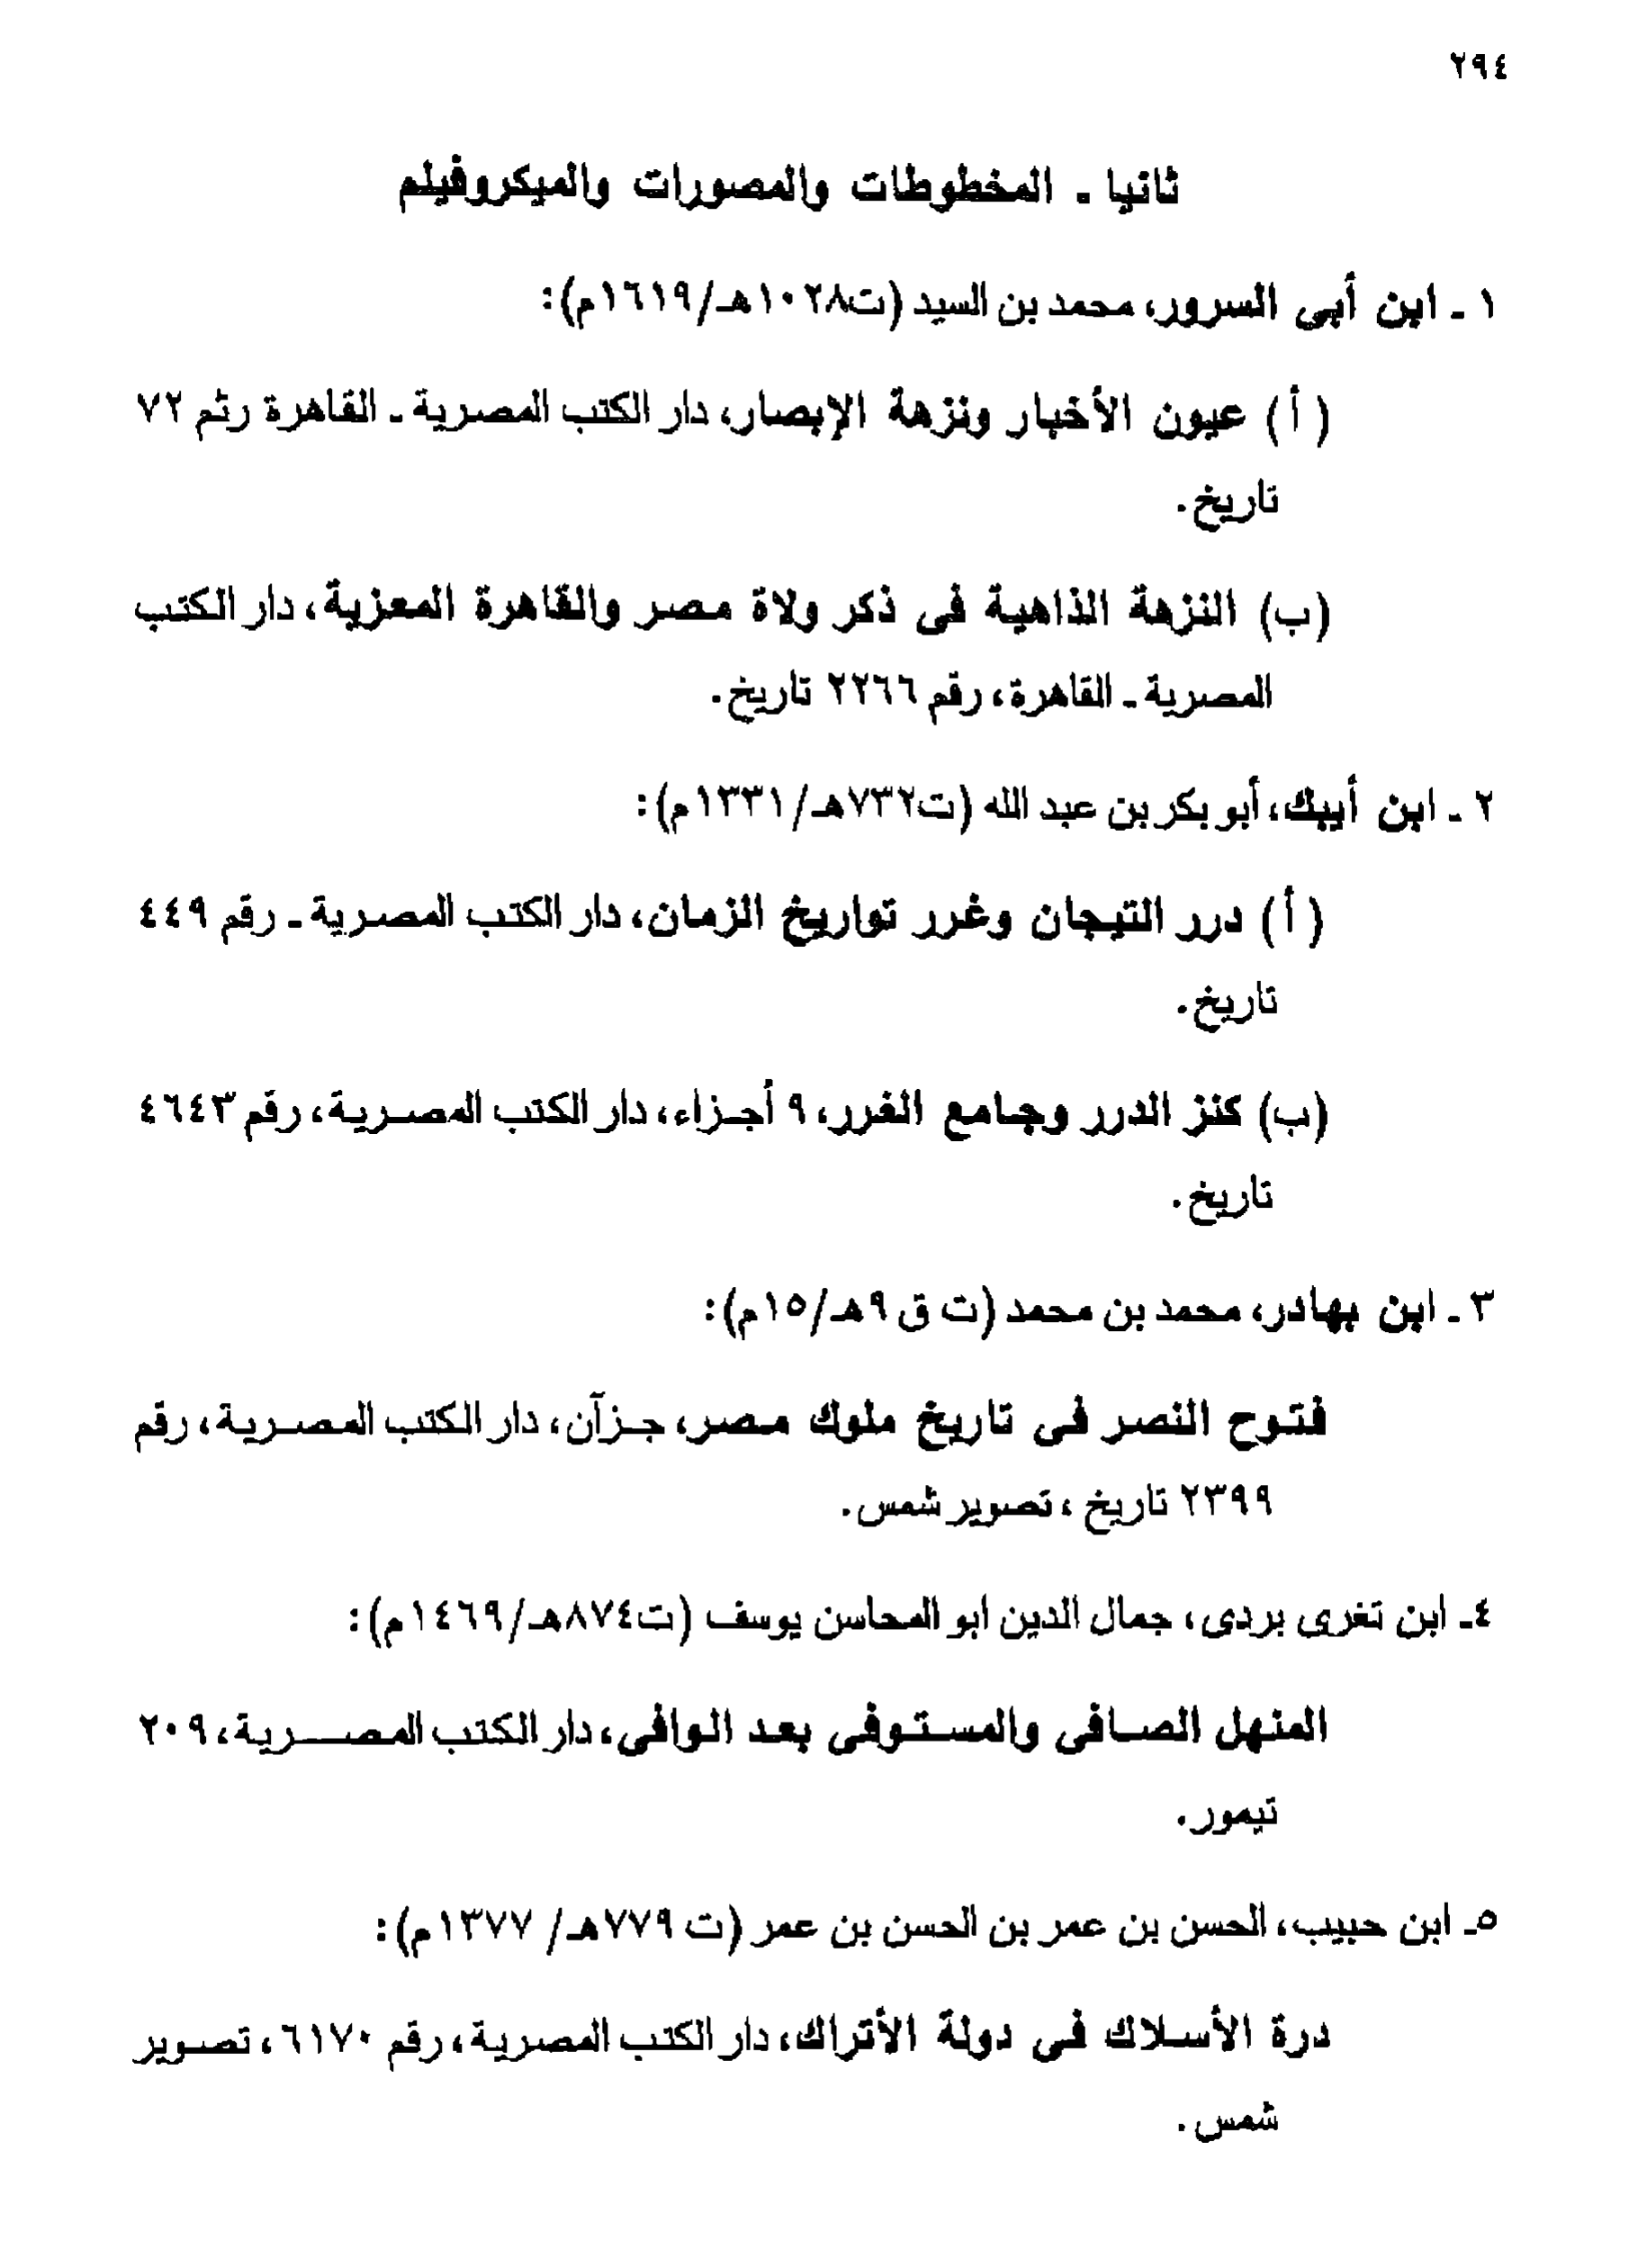 ٢٩٤
ثانيا - المخطوطات والمصورات والميكروفيلم
١ - ابن أبى السرور، محمد بن السيد (ت١٠٢٨هـ/١٦١٩م):
( أ ) عيون الأخبار ونزهة الإبصار، دار الكتب المصرية - القاهرة رقم ٧٢
تاريخ.
(ب) النزهة الذاهية فى ذكر ولاة مصر والقاهرة المعزية، دار الكتب
المصرية - القاهرة، رقم ٢٢٦٦ تاريخ.
٢ - ابن أيبك، أبو بكر بن عبد الله (ت٧٣٢هـ/١٣٣١م):
( أ ) درر التيجان وغرر تواريخ الزمان، دار الكتب المصرية - رقم ٤٤٩
تاريخ.
(ب) كنز الدرر وجامع الغرر، ٩ أجزاء، دار الكتب المصرية، رقم ٤٦٤٣
تاريخ.
٣ - ابن بهادر، محمد بن محمد (ت ق ٩هـ/١٥م):
فتوح النصر فى تاريخ ملوك مصر، جزآن، دار الكتب المصرية، رقم
٢٣٩٩ تاريخ ، تصوير شمس.
٤- ابن تغرى بردى، جمال الدين ابو المحاسن يوسف (ت٨٧٤هـ/١٤٦٩م):
المنهل الصافى والمستوفى بعد الوافى، دار الكتب المصرية، ٢٠٩
تيمور.
٥- ابن حبيب، الحسن بن عمر بن الحسن بن عمر (ت ٧٧٩هـ/ ١٣٧٧م):
درة الأسلاك فى دولة الأتراك، دار الكتب المصرية، رقم ٦١٧٠، تصوير
شمس.